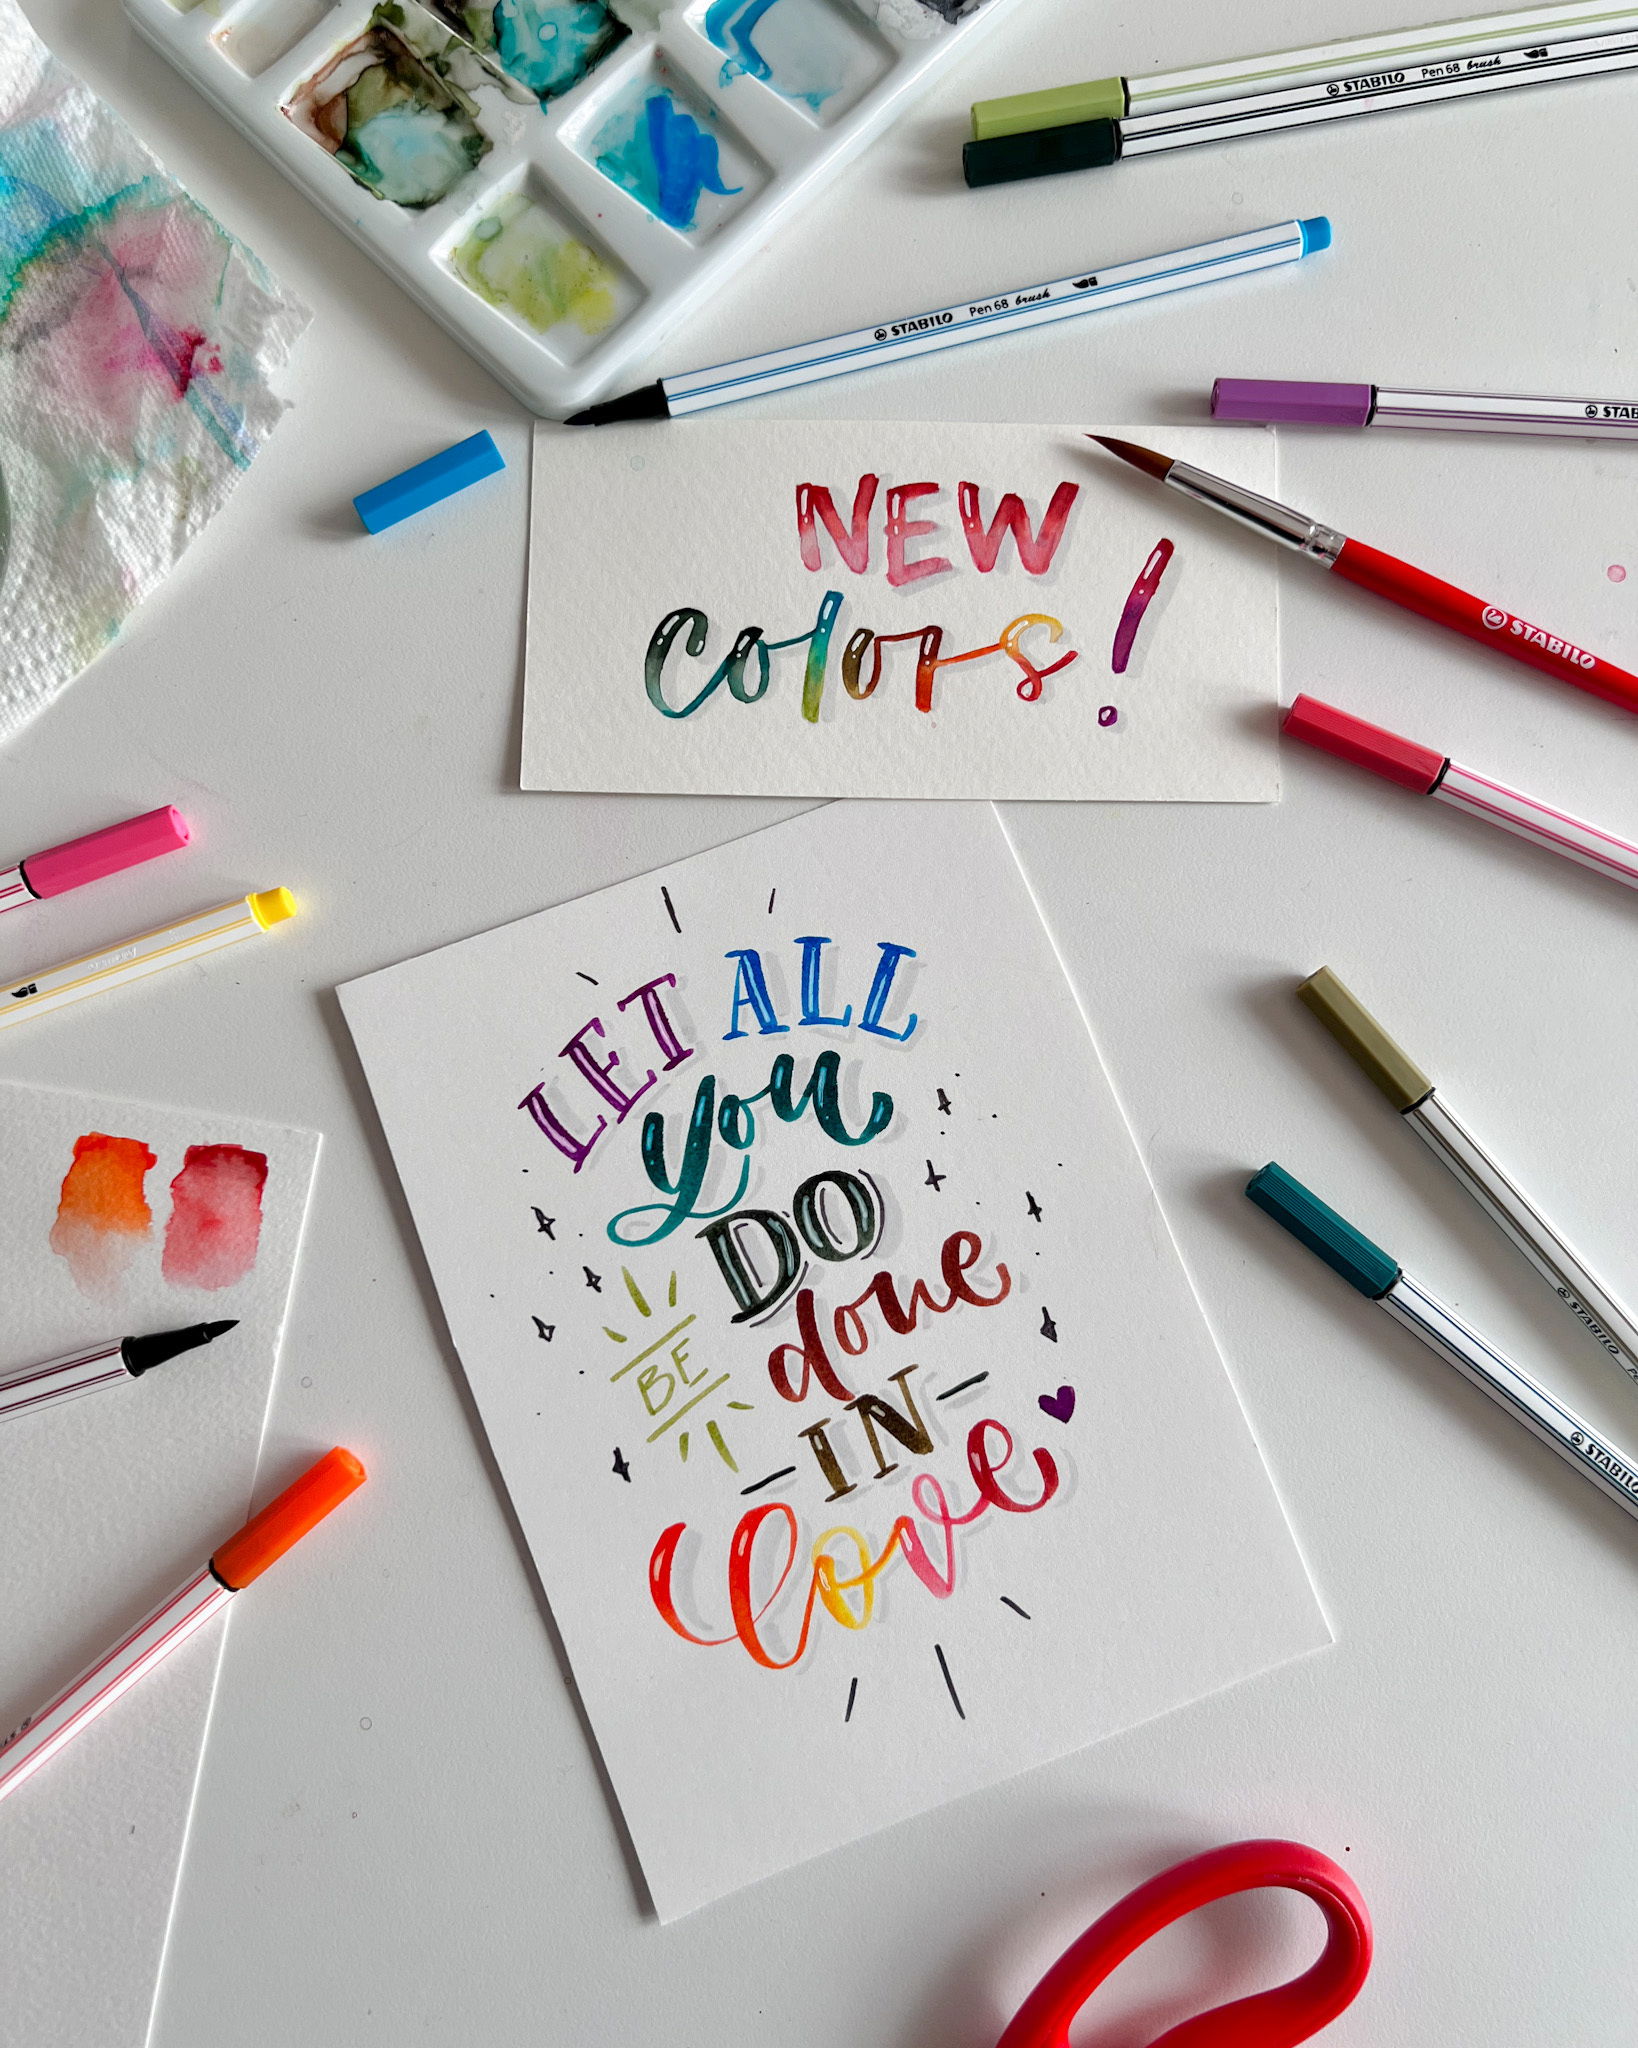 STABILO Pen 68 brush
STABILO Pen 68 brush
STABILO
NEW
colors!
STABILO
LET ALL
you
DO
BE done
IN
love
STABILO
STABILO